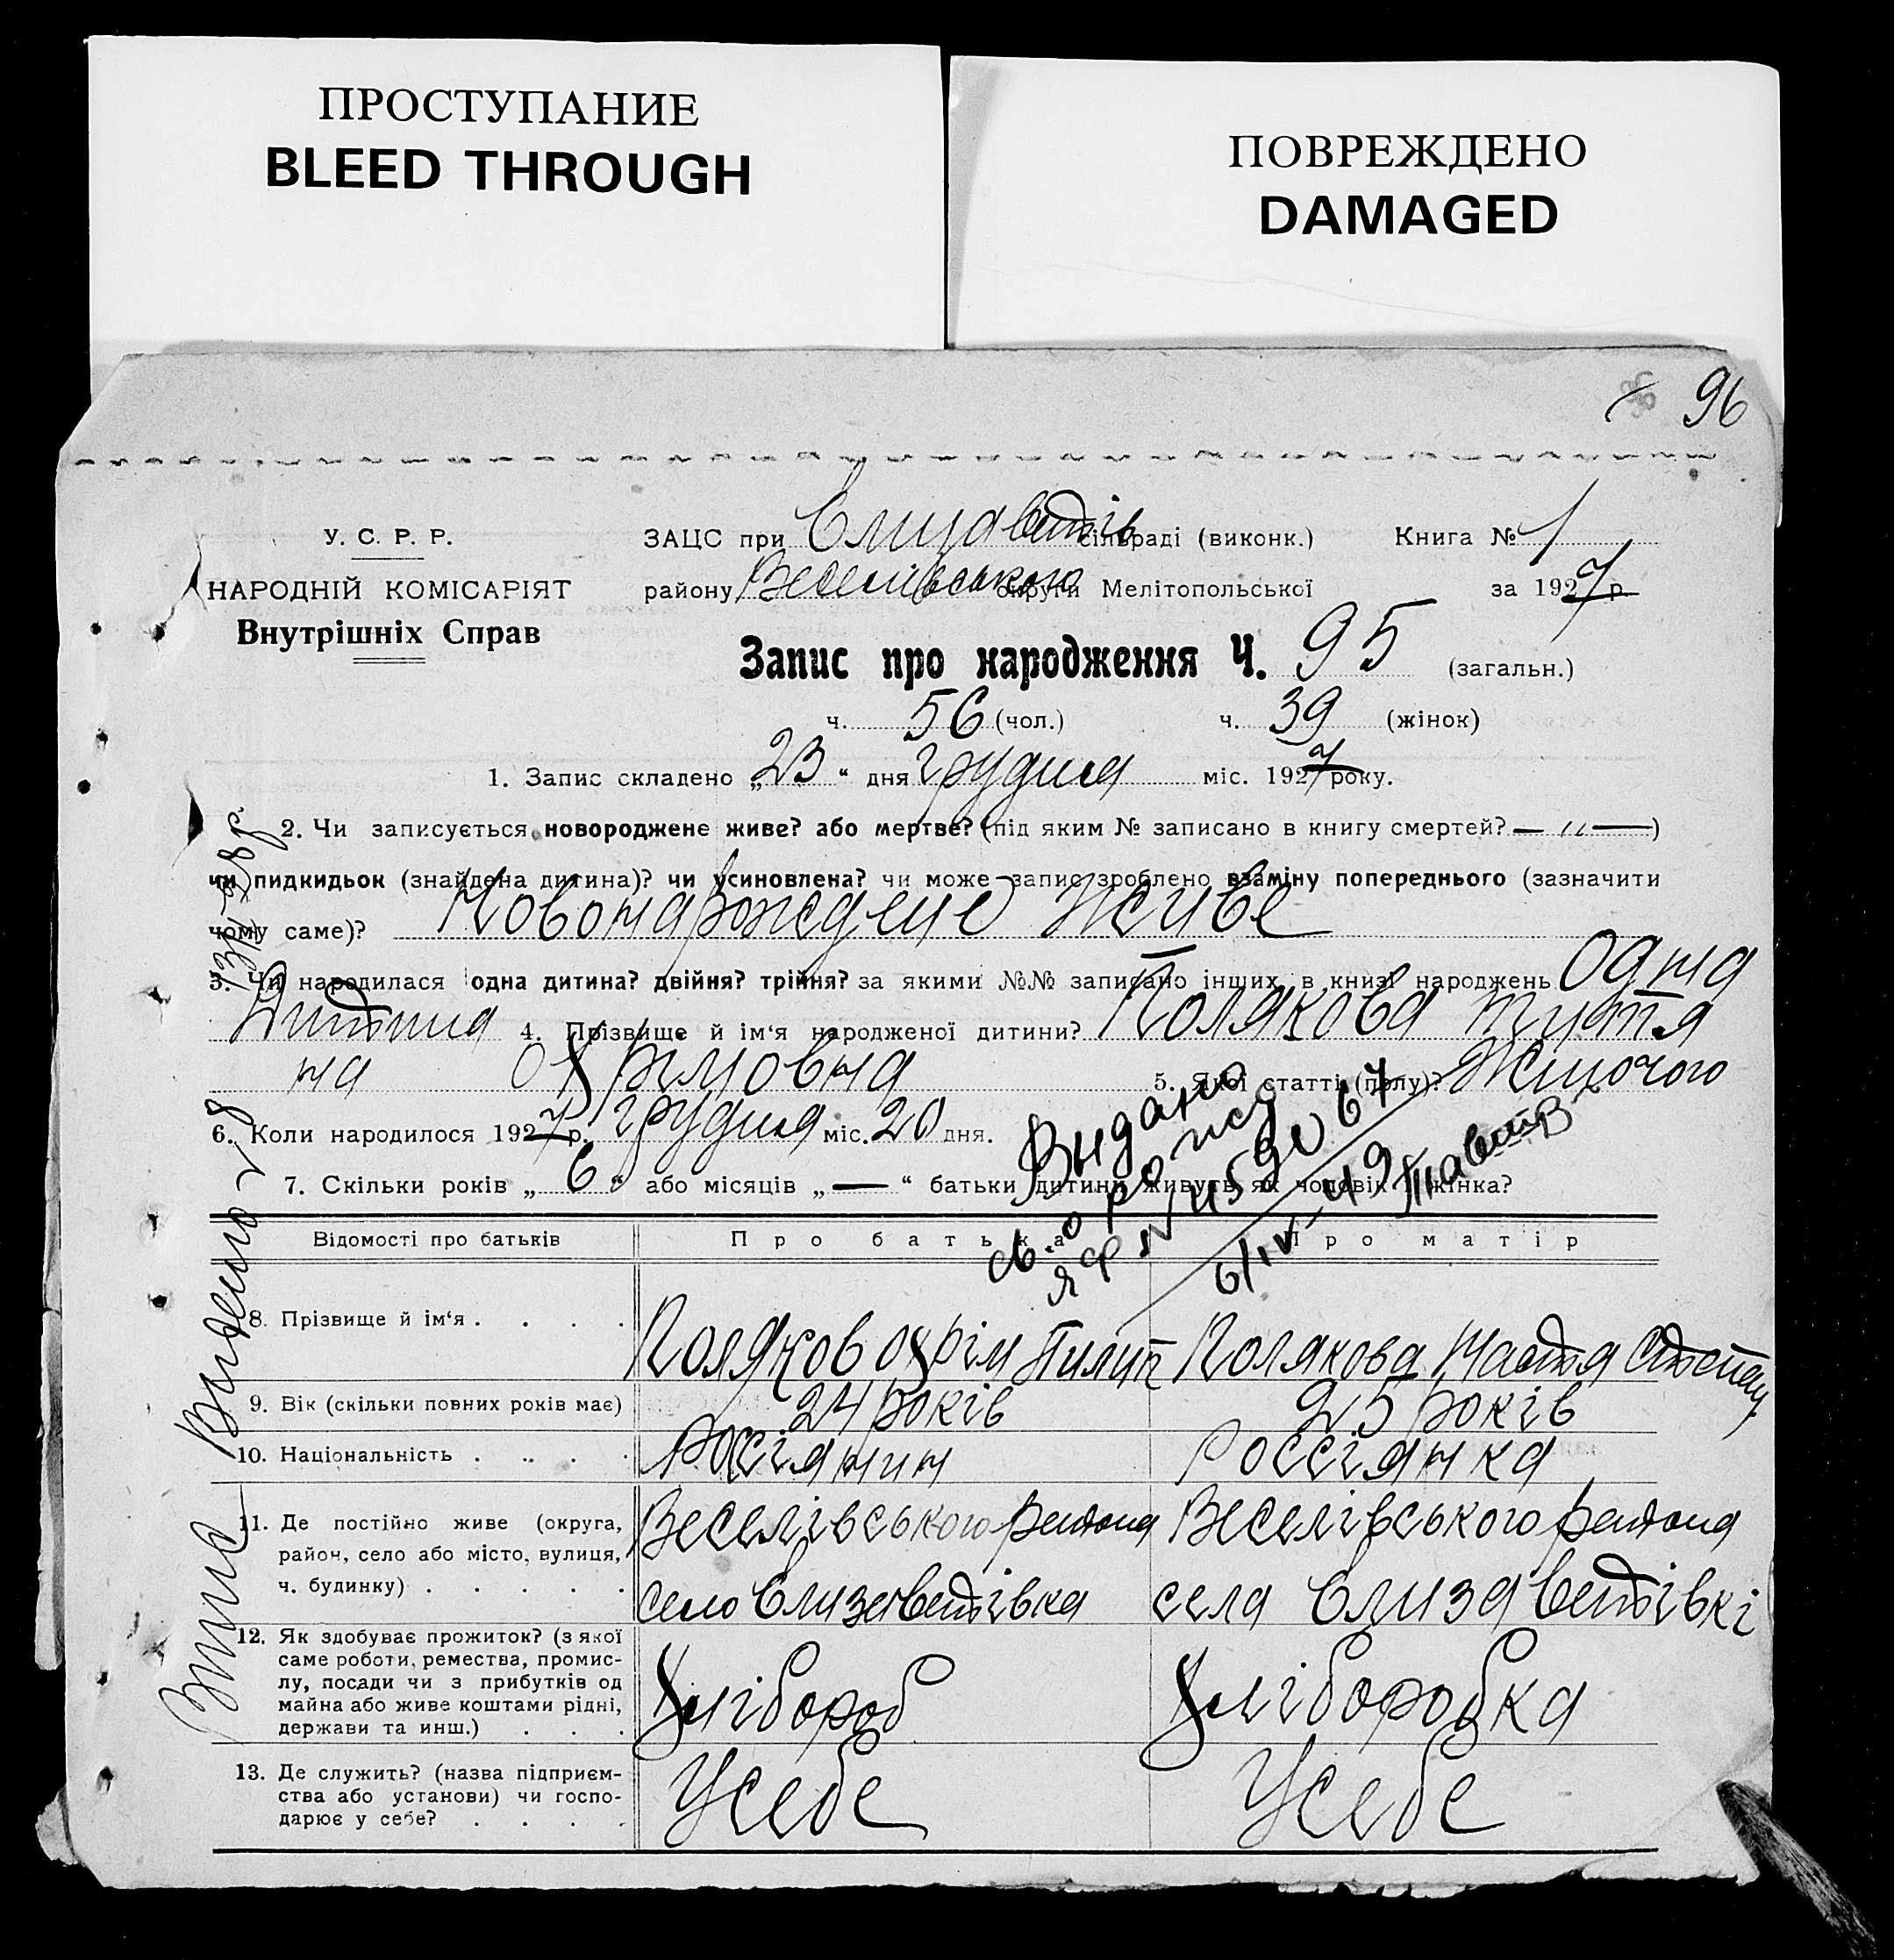 ПРОСТУПАНИЕ
BLEED THROUGH
ПОВРЕЖДЕНО
DAMAGED
96
У. С. Р. Р.
НАРОДНІЙ КОМІСАРІЯТ
Внутрішніх Справ
ЗАЦС при Єлизаветів сільраді (виконк.) Книга № 1
району Веселівською округи Мелітопольської за 1927 р.
Запис про народження Ч. 95 (загальн.)
ч. 56 (чол.) ч. 39 (жінок)
1. Запис складено „23“ дня грудня міс. 1927 року.
2. Чи записується новороджене живе? або мертве? (під яким № записано в книгу смертей? — „ —)
чи пидкидьок (знайдена дитина)? чи усиновлена? чи може запис зроблено взаміну попереднього (зазначити
чому саме)? Новонарождене живе
3. Чи народилася одна дитина? двійня? трійня? за якими №№ записано інших в книзі народжень Одна
Дитина 4. Прізвище й ім‘я народженої дитини? Полякова
на Охрімовна 5. Якої статті (полу)? Жіночого
6. Коли народилося 1927 р. грудня міс. 20 дня.
7. Скільки років „6“ або місяців „—“ батьки дитини живуть як чоловік і жінка?
Видано
св. о
ЯФ №
6/IV-49
Відомості про батьків Про батька Про матір
8. Прізвище й ім‘я . . . . Поляков Охрім Пилип Полякова Настя Степан
9. Вік (скільки повних років має) 24 років 25 років
10. Національність . . . . Россіянин Россіянка
11. Де постійно живе (округа, Веселівського района Веселівського района
район, село або місто, вулиця,
ч. будинку) . . . . . село Єлизаветівка села Єлизаветівкі
12. Як здобуває прожиток? (з якої
саме роботи, ремества, промис-
лу, посади чи з прибутків од Хлібороб Хліборобка
майна або живе коштами рідні,
держави та инш.) . . .
13. Де служить? (назва підприєм-
ства або установи) чи госпо- Усебе Усебе
дарює у себе? . . . .